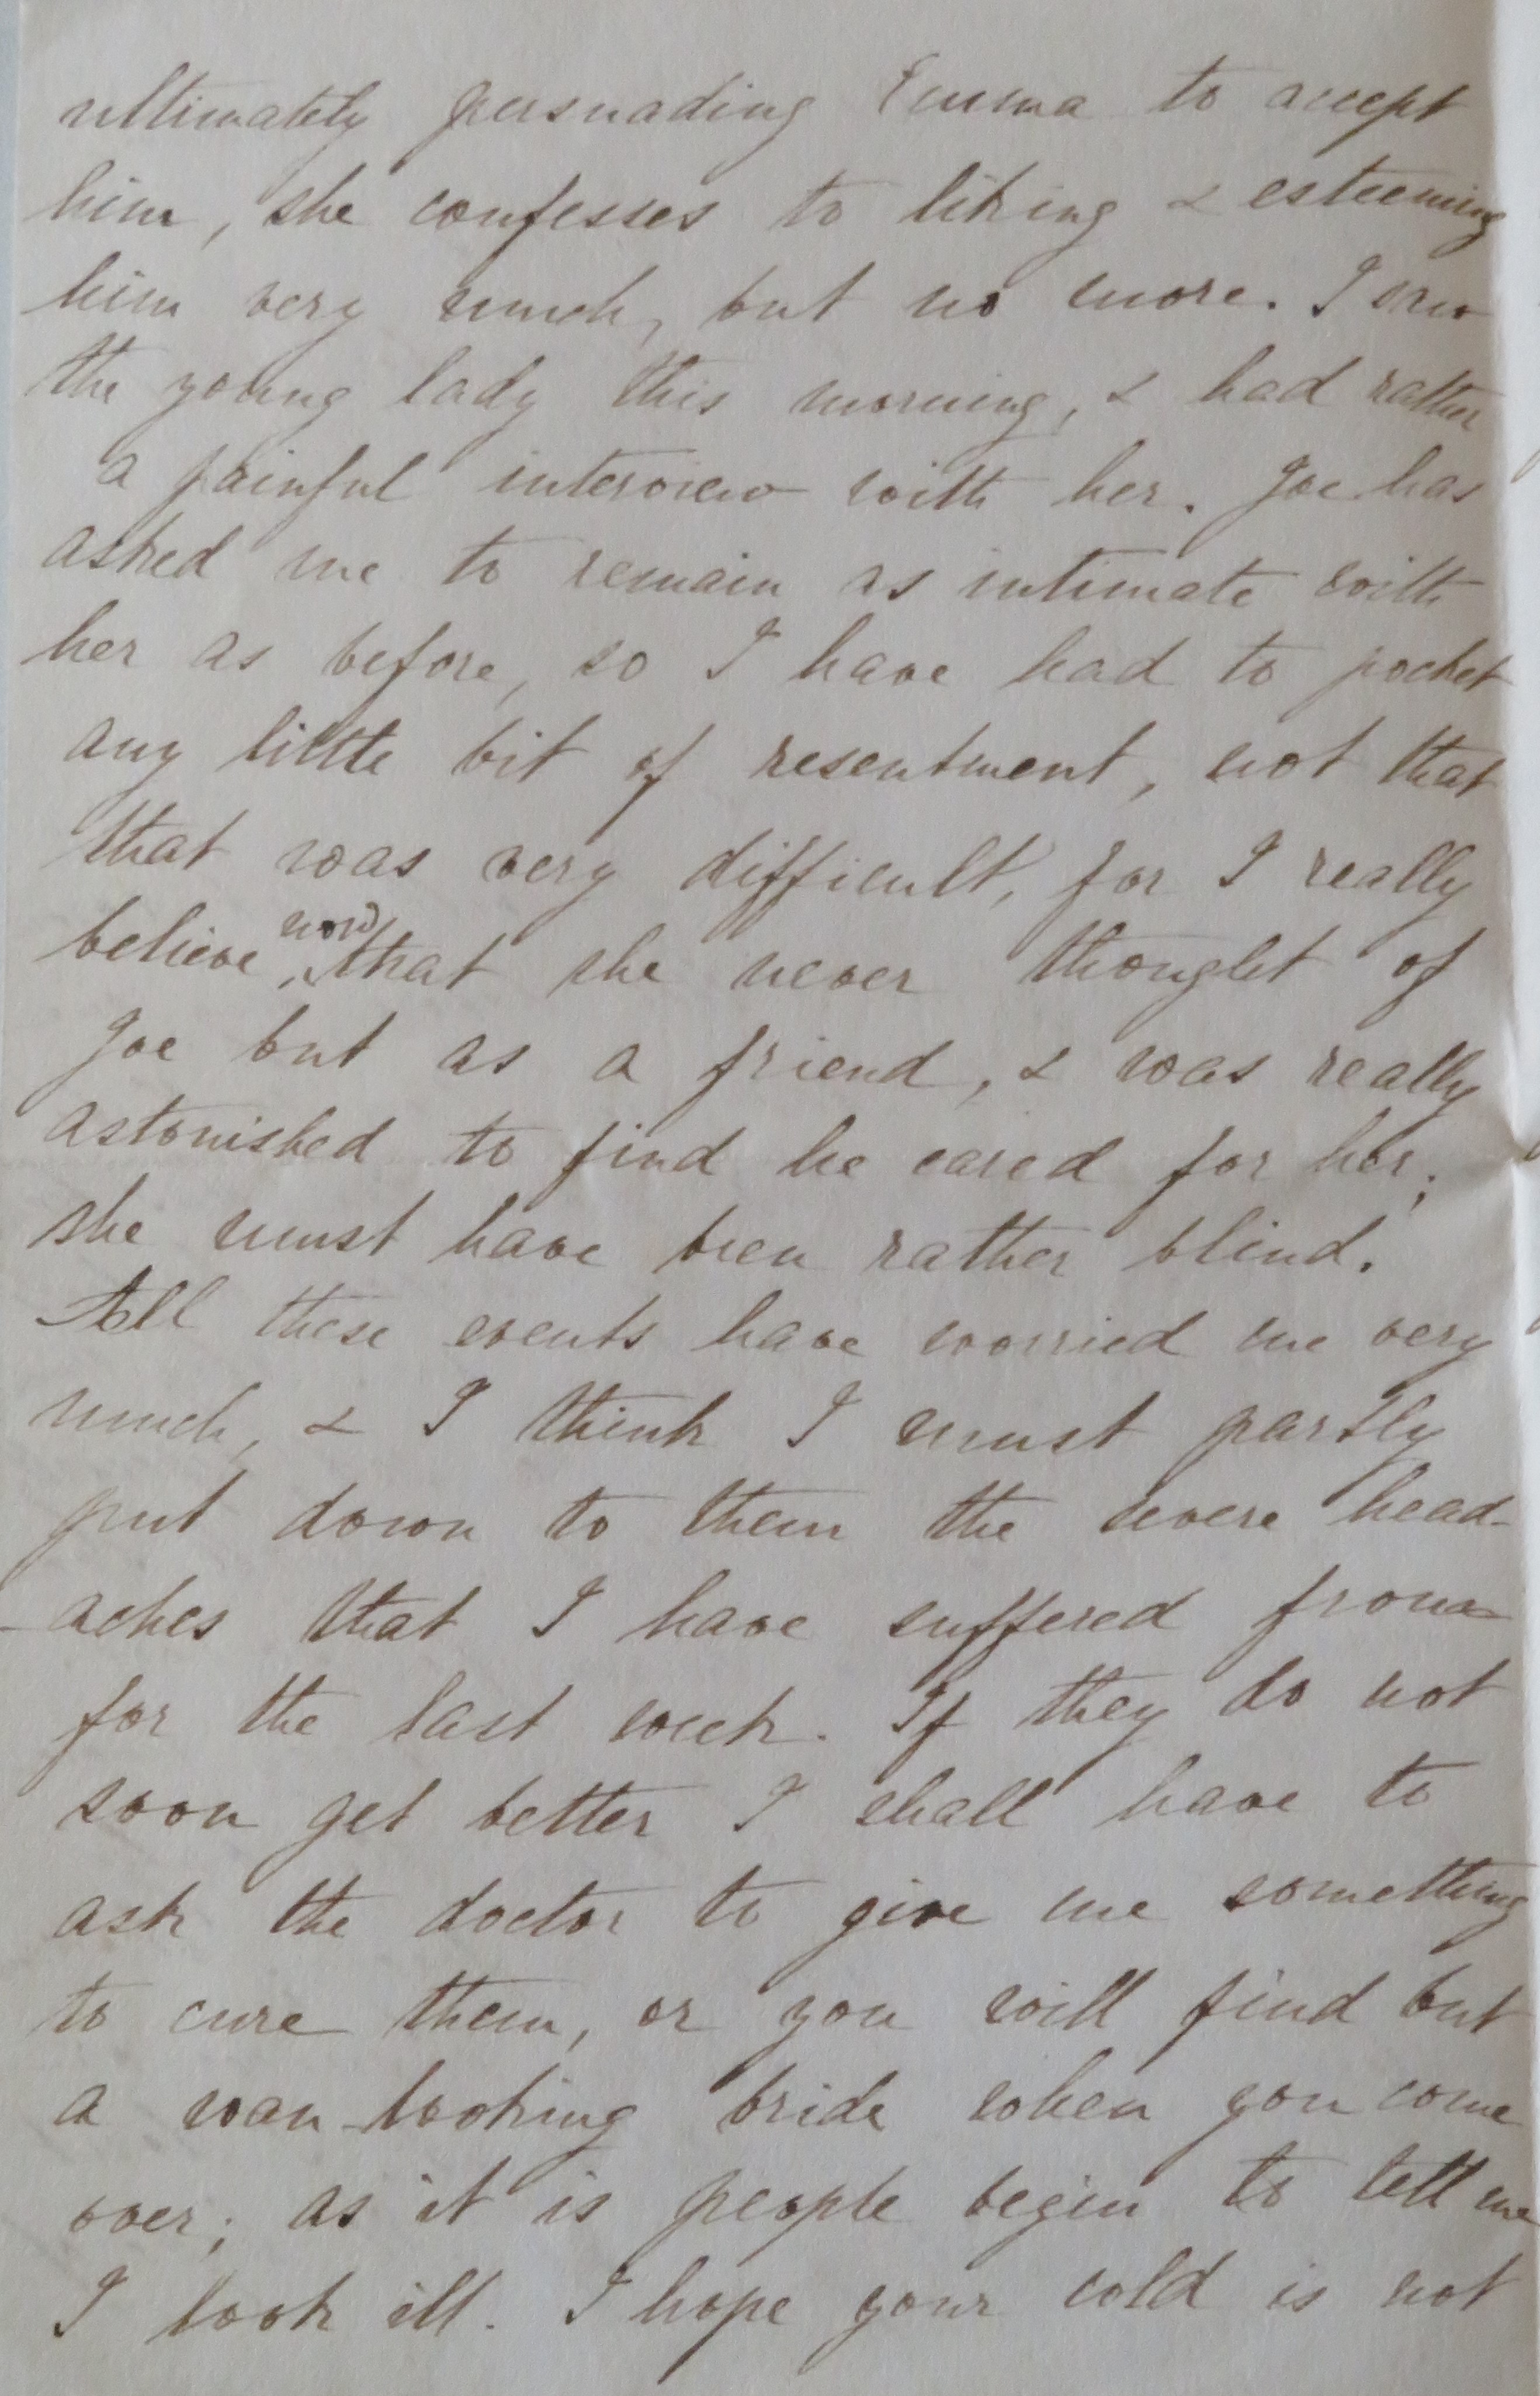 ultimately persuading Emma to accept
him, she confesses to liking & esteeming
him very much, but no more. I saw
the young lady this morning, & had rather
a painful interview with her. Joe has
asked me to remain as intimate with
her as before, so I have had to pocket
any little bit of resentment, not that
that was very difficult, for I really
believe, now that she never thought of
Joe but as a friend, & was really
astonished to find he cared for her;
she must have been rather blind.
All these events have worried me very
much, & I think I must partly
put down to them the severe head-
-aches that I have suffered from
for the last week. If they do not
soon get better I shall have to
ask the doctor to give me something
to cure them, or you will find but
a wan-looking bride when you come
over; as it is people begin to tell me
I look ill. I hope your cold is not